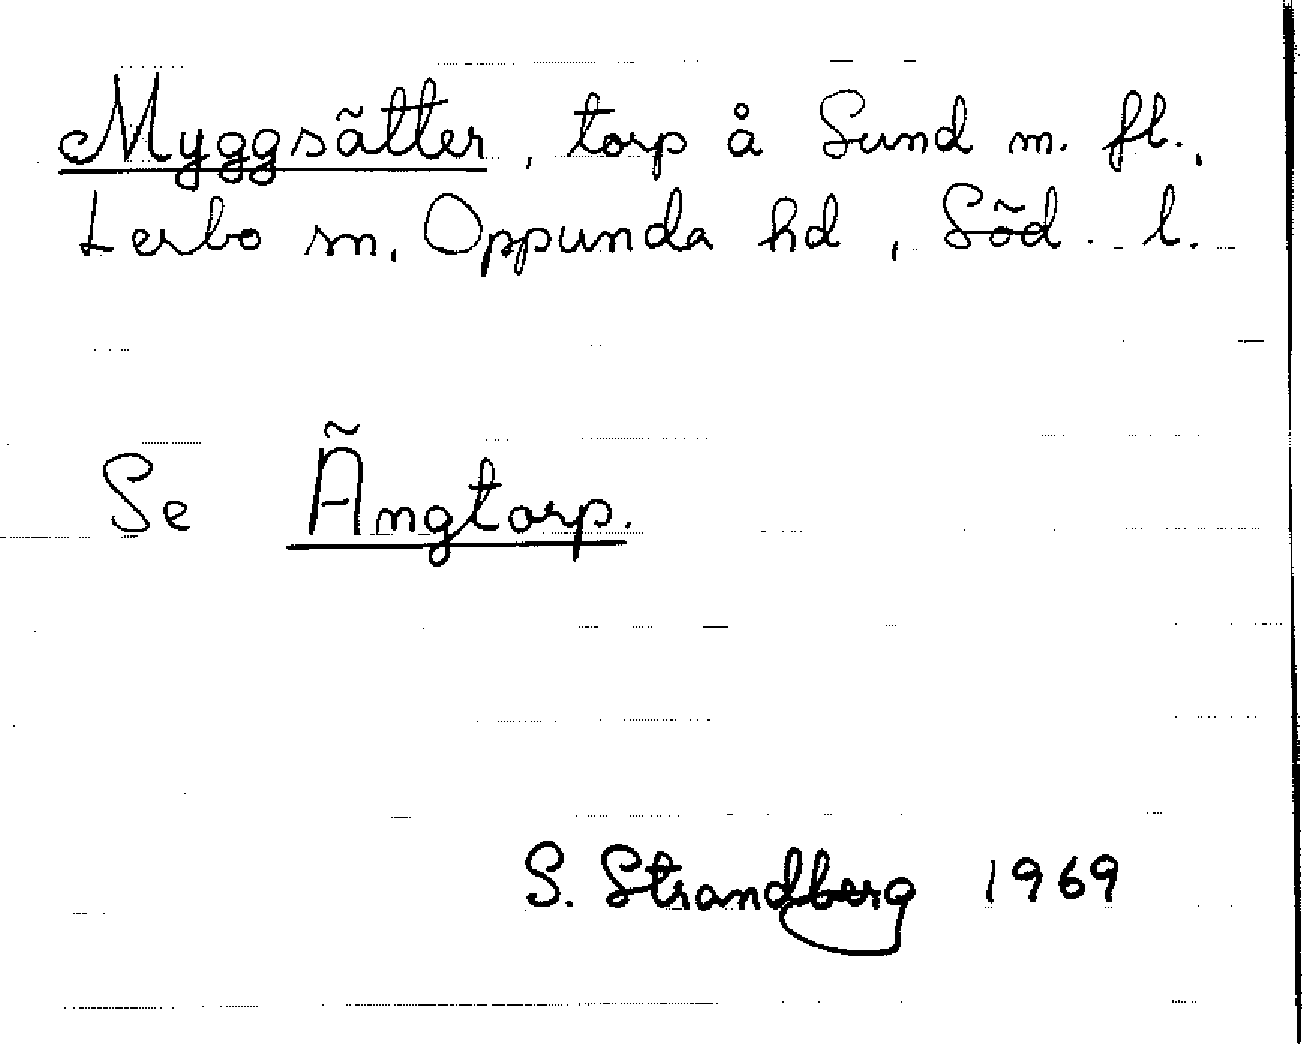 Myggsätter, torp å Sund m. fl.,
Lerbo sn, Oppunda hd, Söd. l.
Se Ängtorp.
S. Strandberg 1969